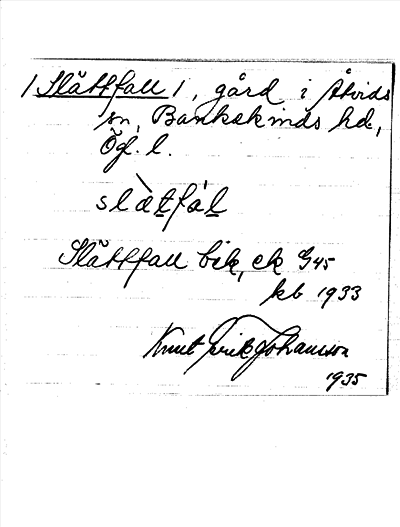 /Slättfall/, gård i Åtvids
sn, Bankekinds hd,
Ögl. l.
slätfal
Slättfall bik, ek G45
kb 1933
Knut Erik Johansson
1935